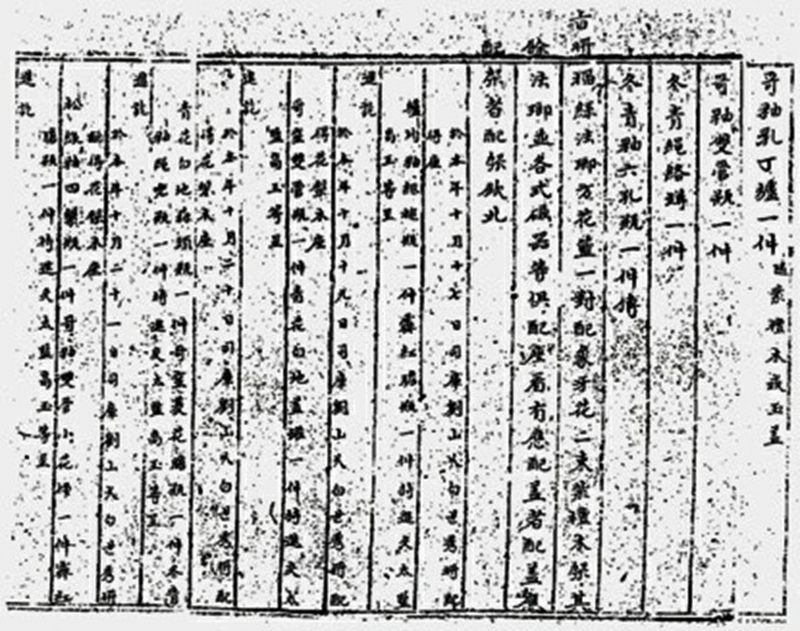 哥釉乳丁爐一件 紫檀木座玉蓋
哥釉雙管瓶一件
冬青繩絡罇一件
冬青釉六孔瓶一件 傳
旨將瑠綠法瑯方花籃一對配象牙花二束紫檀木架其
餘法瑯並各式磁器等俱配座若有應配蓋者配蓋
配架者配架欽此
於本年十月十七日司庫劉山久白世秀將配
得座
爐均釉紙槌瓶一件霽紅膽瓶一件持進交太監
高玉等呈
進訖
於本年十月十九日司庫劉山久白世秀將配
得花梨木座
哥窰雙管瓶一件青花白地蓋罐一件持進交太
監高玉等呈
進訖
於本年十月二十日司庫劉山久白世秀將配
得花梨木座
青花白地蒜頭瓶一件哥窰菱花膽瓶一件冬青
釉 瓶一件持進交太監高玉等呈
進訖
於本年十月二十一日司庫劉山久白世秀將
配得花梨木座
松綠釉四 瓶一件哥釉雙管小花 一件霽紅
膽瓶一件持進交太監高玉等呈
進訖